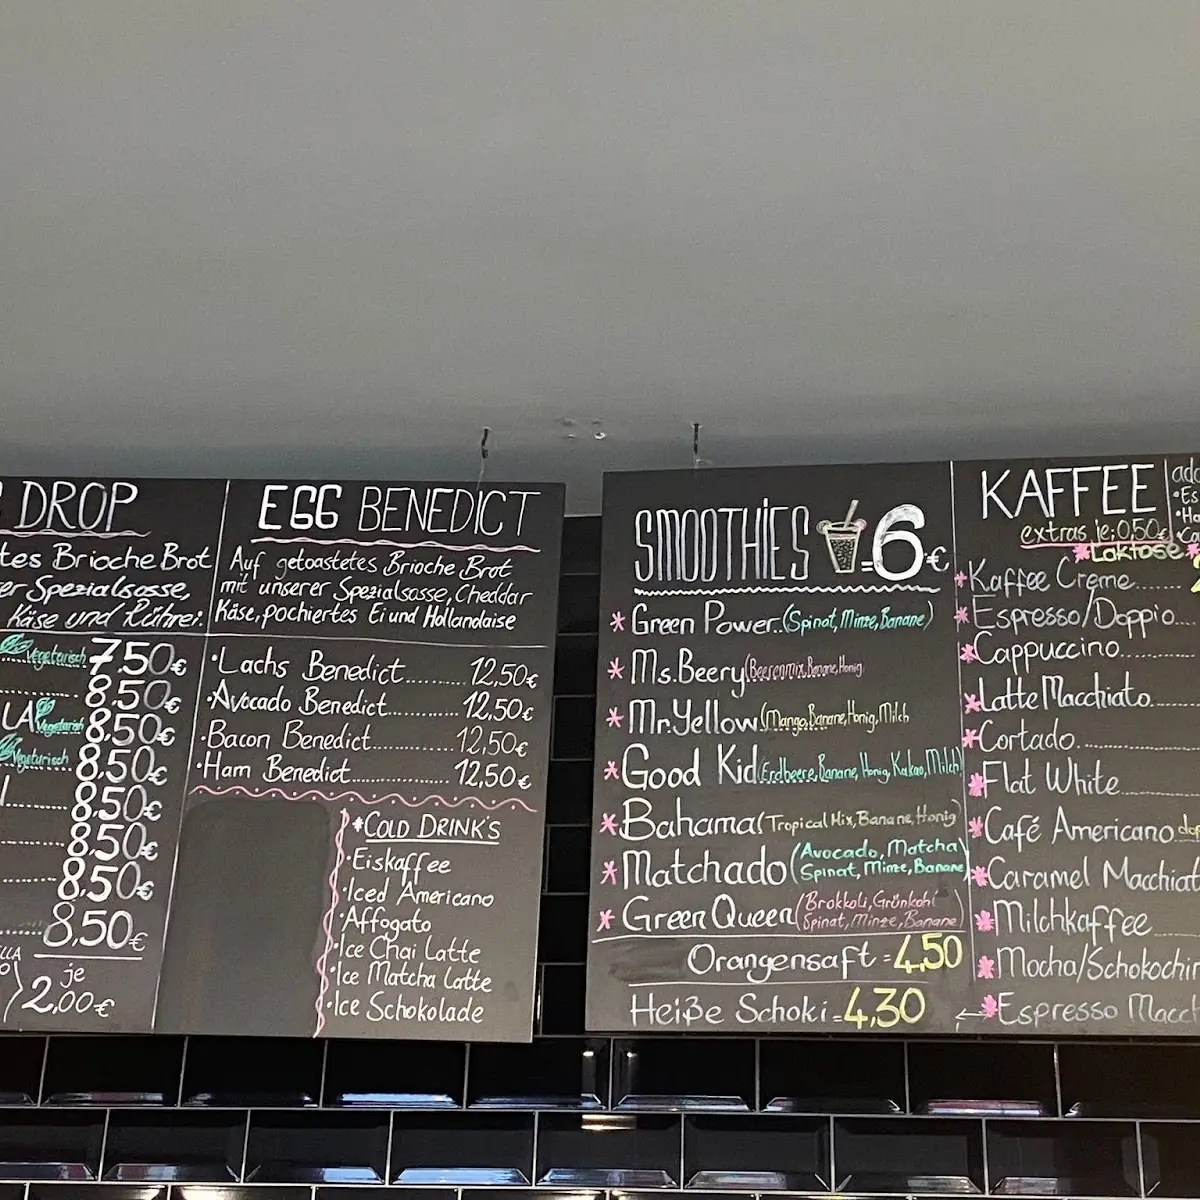 DROP
tes Brioche Brot
er Spezialsosse,
Käse und Rührei.
Vegetarisch 7,50€
8,50€
LA Vegetarisch 8,50€
Vegetarisch 8,50€
8,50€
8,50€
8,50€
8,50€
je
2,00€
EGG BENEDICT
Auf getoastetes Brioche Brot
mit unserer Spezialsosse, Cheddar
Käse, pochiertes Ei und Hollandaise
·Lachs Benedict........ 12,50€
·Avocado Benedict............ 12,50€
·Bacon Benedict.............. 12,50€
·Ham Benedict................. 12,50€
*COLD DRINK'S
·Eiskaffee
·Iced Americano
·Affogato
·Ice Chai Latte
·Ice Matcha Latte
·Ice Schokolade
SMOOTHIES =6€
*Green Power..(Spinat, Minze, Banane)
*Ms.Beery(Beerenmix, Banane, Honig
*Mr.Yellow(Mango, Banane, Honig, Milch
*Good Kid(Erdbeere, Banane, Honig, Kakao, Milch)
*Bahama(Tropical Mix, Banane, Honig)
*Matchado(Avocado, Matcha
Spinat, Minze, Banane)
*Green Queen(Brokkoli, Grünkohl
Spinat, Minze, Banane)
Orangensaft = 4,50
Heiße Schoki = 4,30
KAFFEE
extras je: 0,50€
*Laktose *
*Kaffee Creme......
*Espresso/Doppio....
*Cappuccino...........
*Latte Macchiato......
*Cortado...................
*Flat White..............
*Café Americano
*Caramel Macchiat
*Milchkaffee.........
*Mocha/Schokochin
←*Espresso Macch